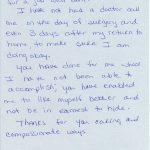 for a job well done.
I have not had a doctor call
me on the day of surgery and
even 3 days after my return to
home, to make sure I am
doing okay.
You have done for me what
I have not been able to
accomplish, you have enabled
me to like myself better and
not be in earnest to hide.
Thanks for you caring and
compassionate ways.